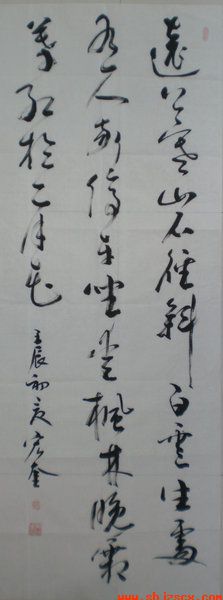 遠上寒山石徑斜白雲生處
有人家停車坐愛楓林晚霜
葉紅於二月花
壬辰初夏